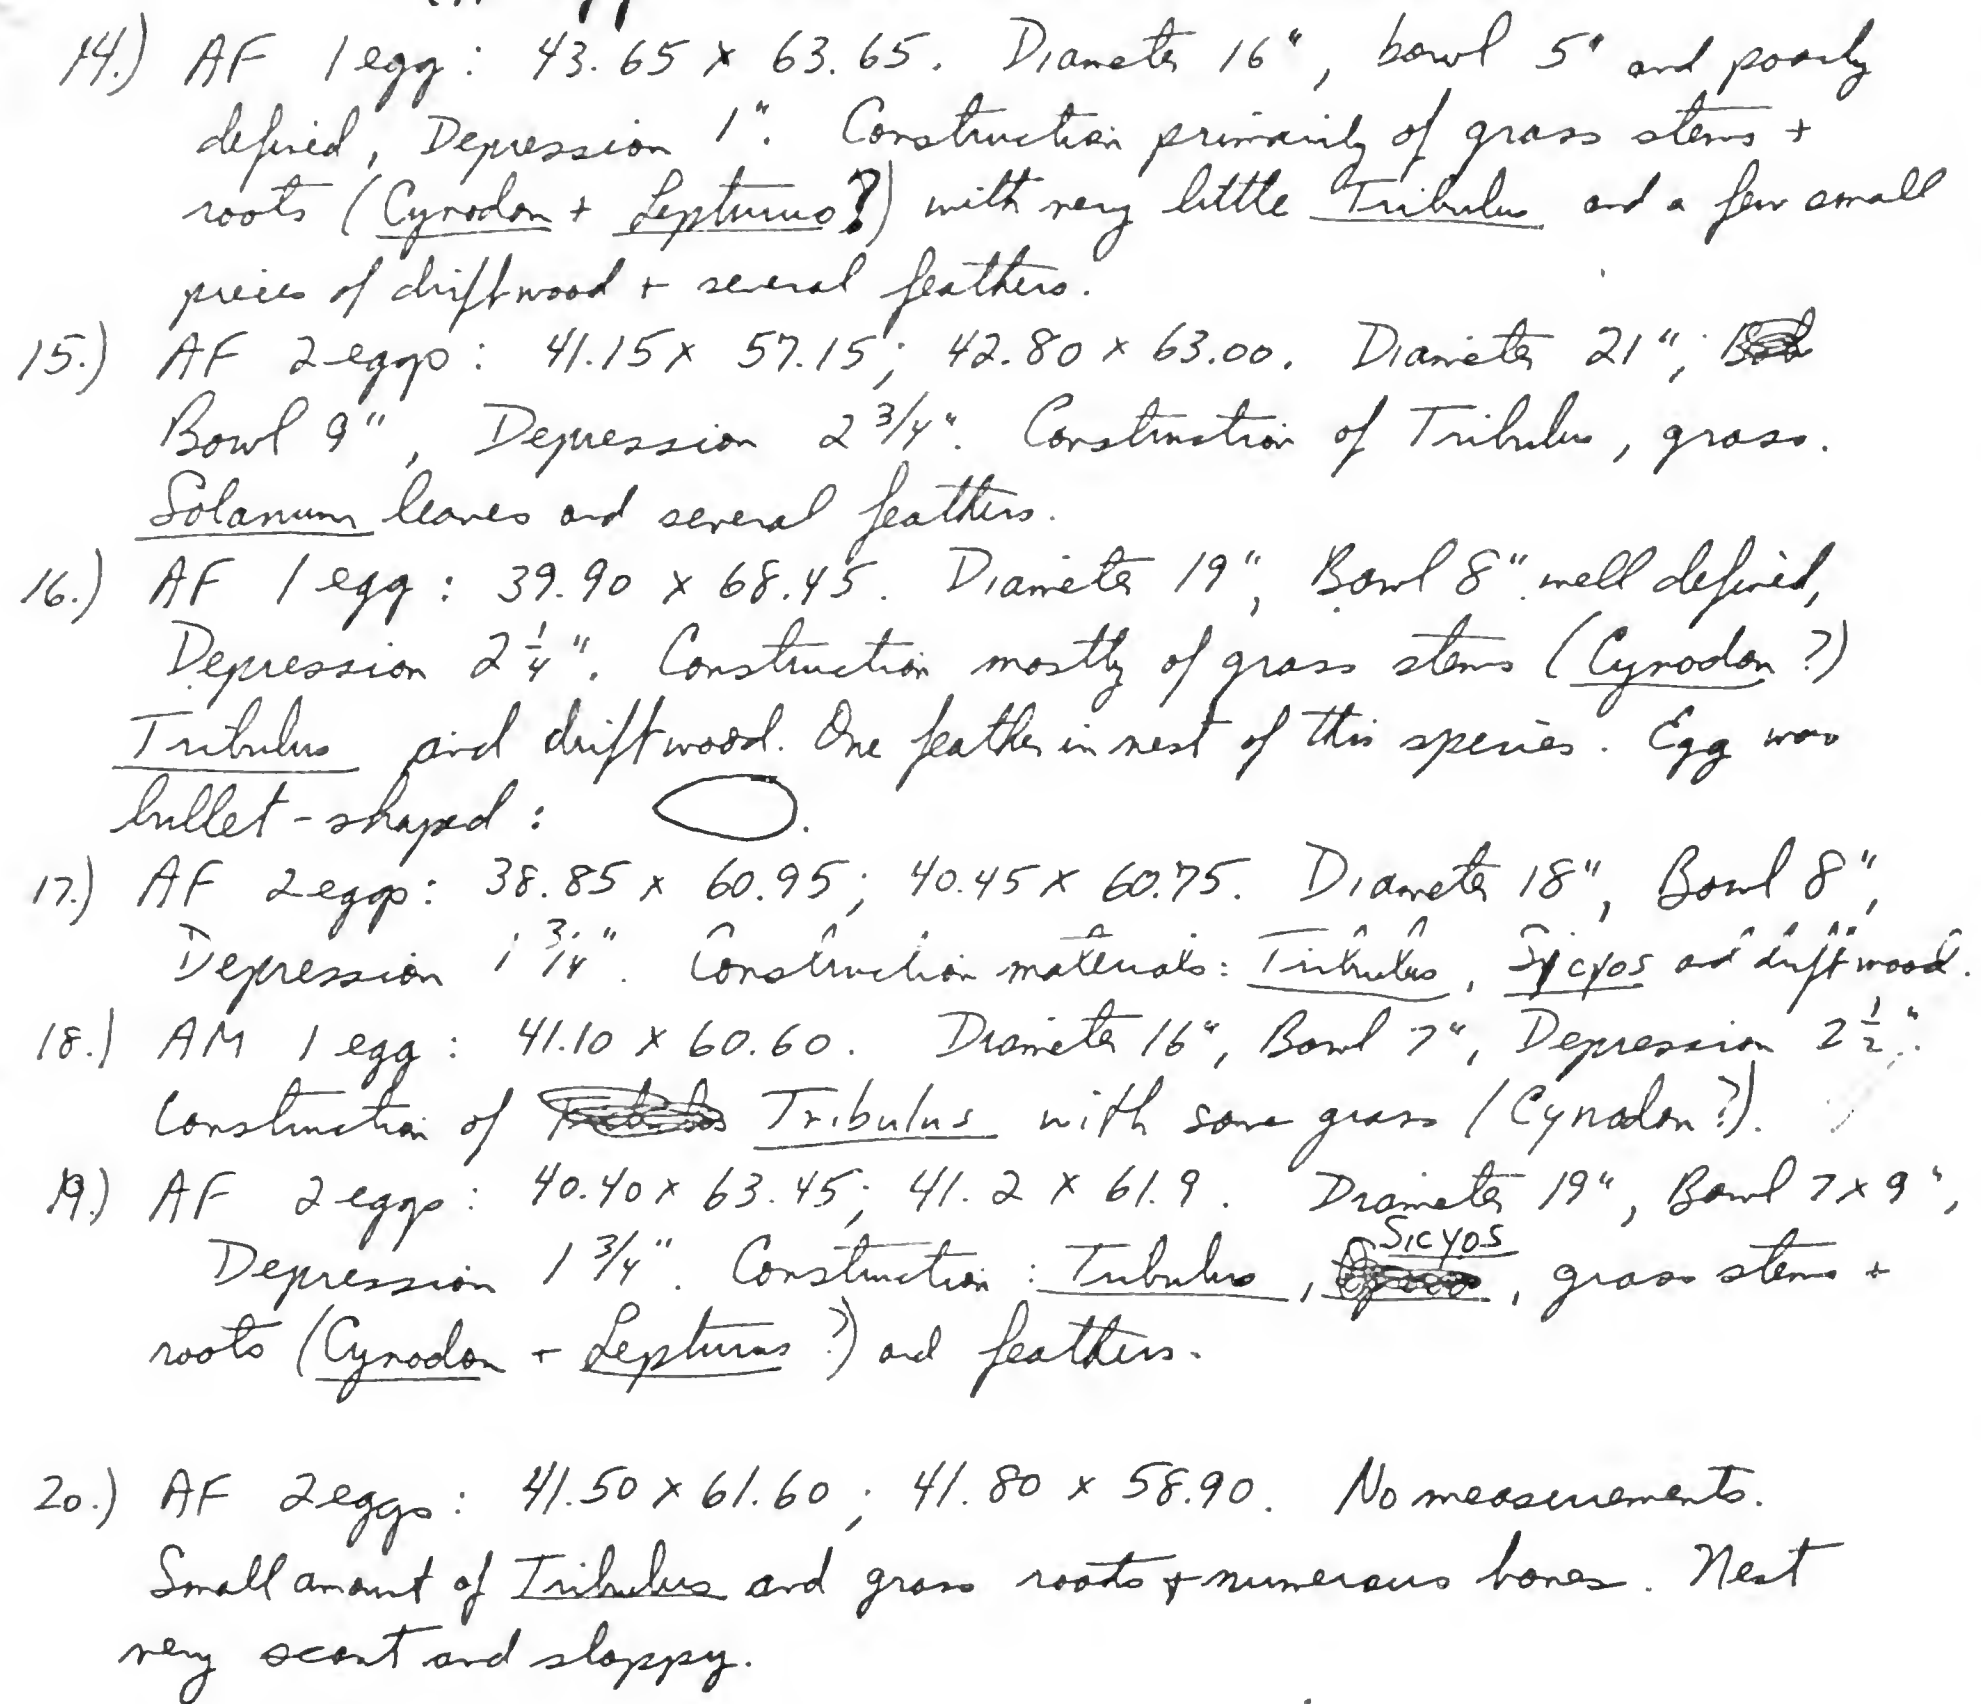 14.) AF 1 egg: 43.65 x 63.65. Diameter 16", bowl 5" and poorly
defined, Depression 1". Construction primarily of grass stems +
roots (Cynodon + Lepturus?) with very little Tribulus and a few small
pieces of driftwood + several feathers.
15.) AF 2 eggs: 41.15 x 57.15; 42.80 x 63.00. Diameter 21";
Bowl 9", Depression 2 3/4". Construction of Tribulus, grass.
Solanum leaves and several feathers.
16.) AF 1 egg: 39.90 x 68.45. Diameter 19", Bowl 8" well defined,
Depression 2 1/4". Construction mostly of grass stems (Cynodon?)
Tribulus and driftwood. One feather in nest of this species. Egg was
bullet-shaped: .
17.) AF 2 eggs: 38.85 x 60.95; 40.45 x 60.75. Diameter 18", Bowl 8",
Depression 1 3/4". Construction materials: Tribulus, Sicyos and driftwood.
18.) AM 1 egg: 41.10 x 60.60. Diameter 16", Bowl 7", Depression 2 1/2".
Construction of Tribulus with some grass (Cynodon?).
19.) AF 2 eggs: 40.40 x 63.45; 41.2 x 61.9. Diameter 19", Bowl 7 x 9",
Depression 1 3/4". Construction: Tribulus, Sicyos, grass stems +
roots (Cynodon + Lepturus?) and feathers.
20.) AF 2 eggs: 41.50 x 61.60; 41.80 x 58.90. No measurements.
Small amount of Tribulus and grass roots + numerous bones. Nest
very scant and sloppy.